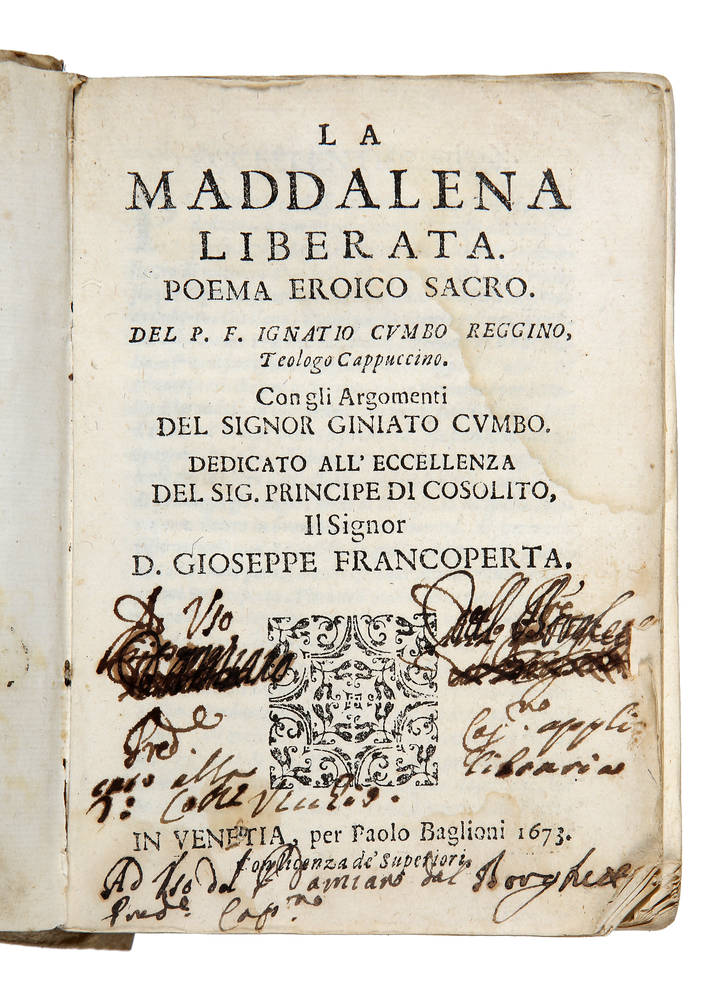 LA
MADDALENA
LIBERATA.
POEMA EROICO SACRO.
DEL P. F. IGNATIO CVMBO REGGINO,
Teologo Cappuccino.
Con gli Argomenti
DEL SIGNOR GINIATO CVMBO.
DEDICATO ALL' ECCELLENZA
DEL SIG. PRINCIPE DI COSOLITO,
Il Signor
D. GIOSEPPE FRANCOPERTA.
Ad Vso
Pred.e
Cap.no appli
alla libraria
IN VENETIA, per Paolo Baglioni 1673.
Con licenza de' Superiori.
Ad Vso del P Damiano dal Borghese
Pred.e Cap.no